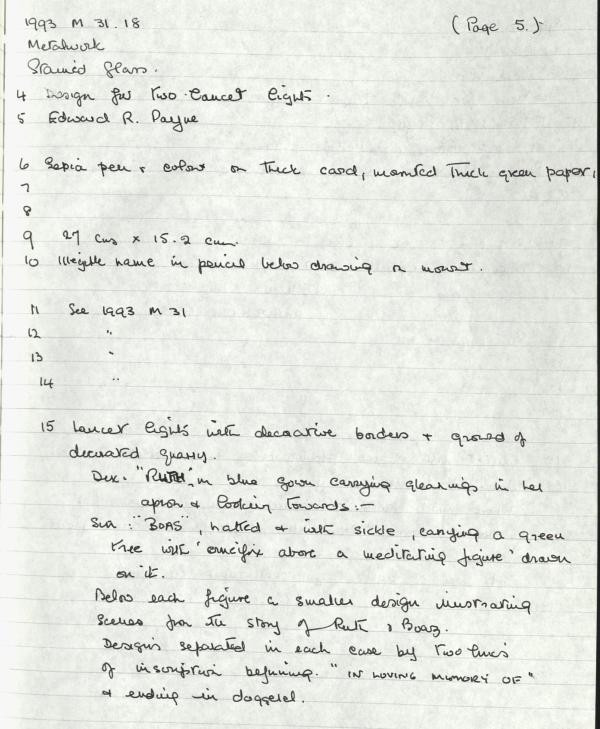 1993 M 31.18 (Page 5.)
Metalwork
Stained Glass.
4 Design for two lancet lights.
5 Edward R. Payne
6 Sepia pen & colour on thick card, mounted thick green paper,
7
8
9 27 cms x 15.2 cms.
10 Illegible name in pencil below drawing on mount.
11 See 1993 M 31
12 "
13 "
14 "
15 Lancet lights with decorative borders + ground of
decorated quarry.
Dex. "RUTH", in blue gown carrying gleanings in her
apron & looking towards:-
Sin: "BOAS", hatted & with sickle, carrying a green
tree with 'crucifix above a meditating figure' drawn
on it.
Below each figure a smaller design illustrating
scenes from the story of Ruth & Boaz.
Designs separated in each case by two lines
of inscription beginning. "IN LOVING MEMORY OF"
& ending in doggerel.